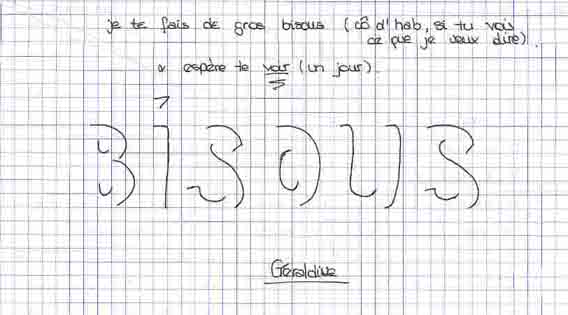 je te fais de gros bisous (cô d'hab, si tu vois
ce que je veux dire).
& espère te voir (un jour).
BISOUS
Géraldine